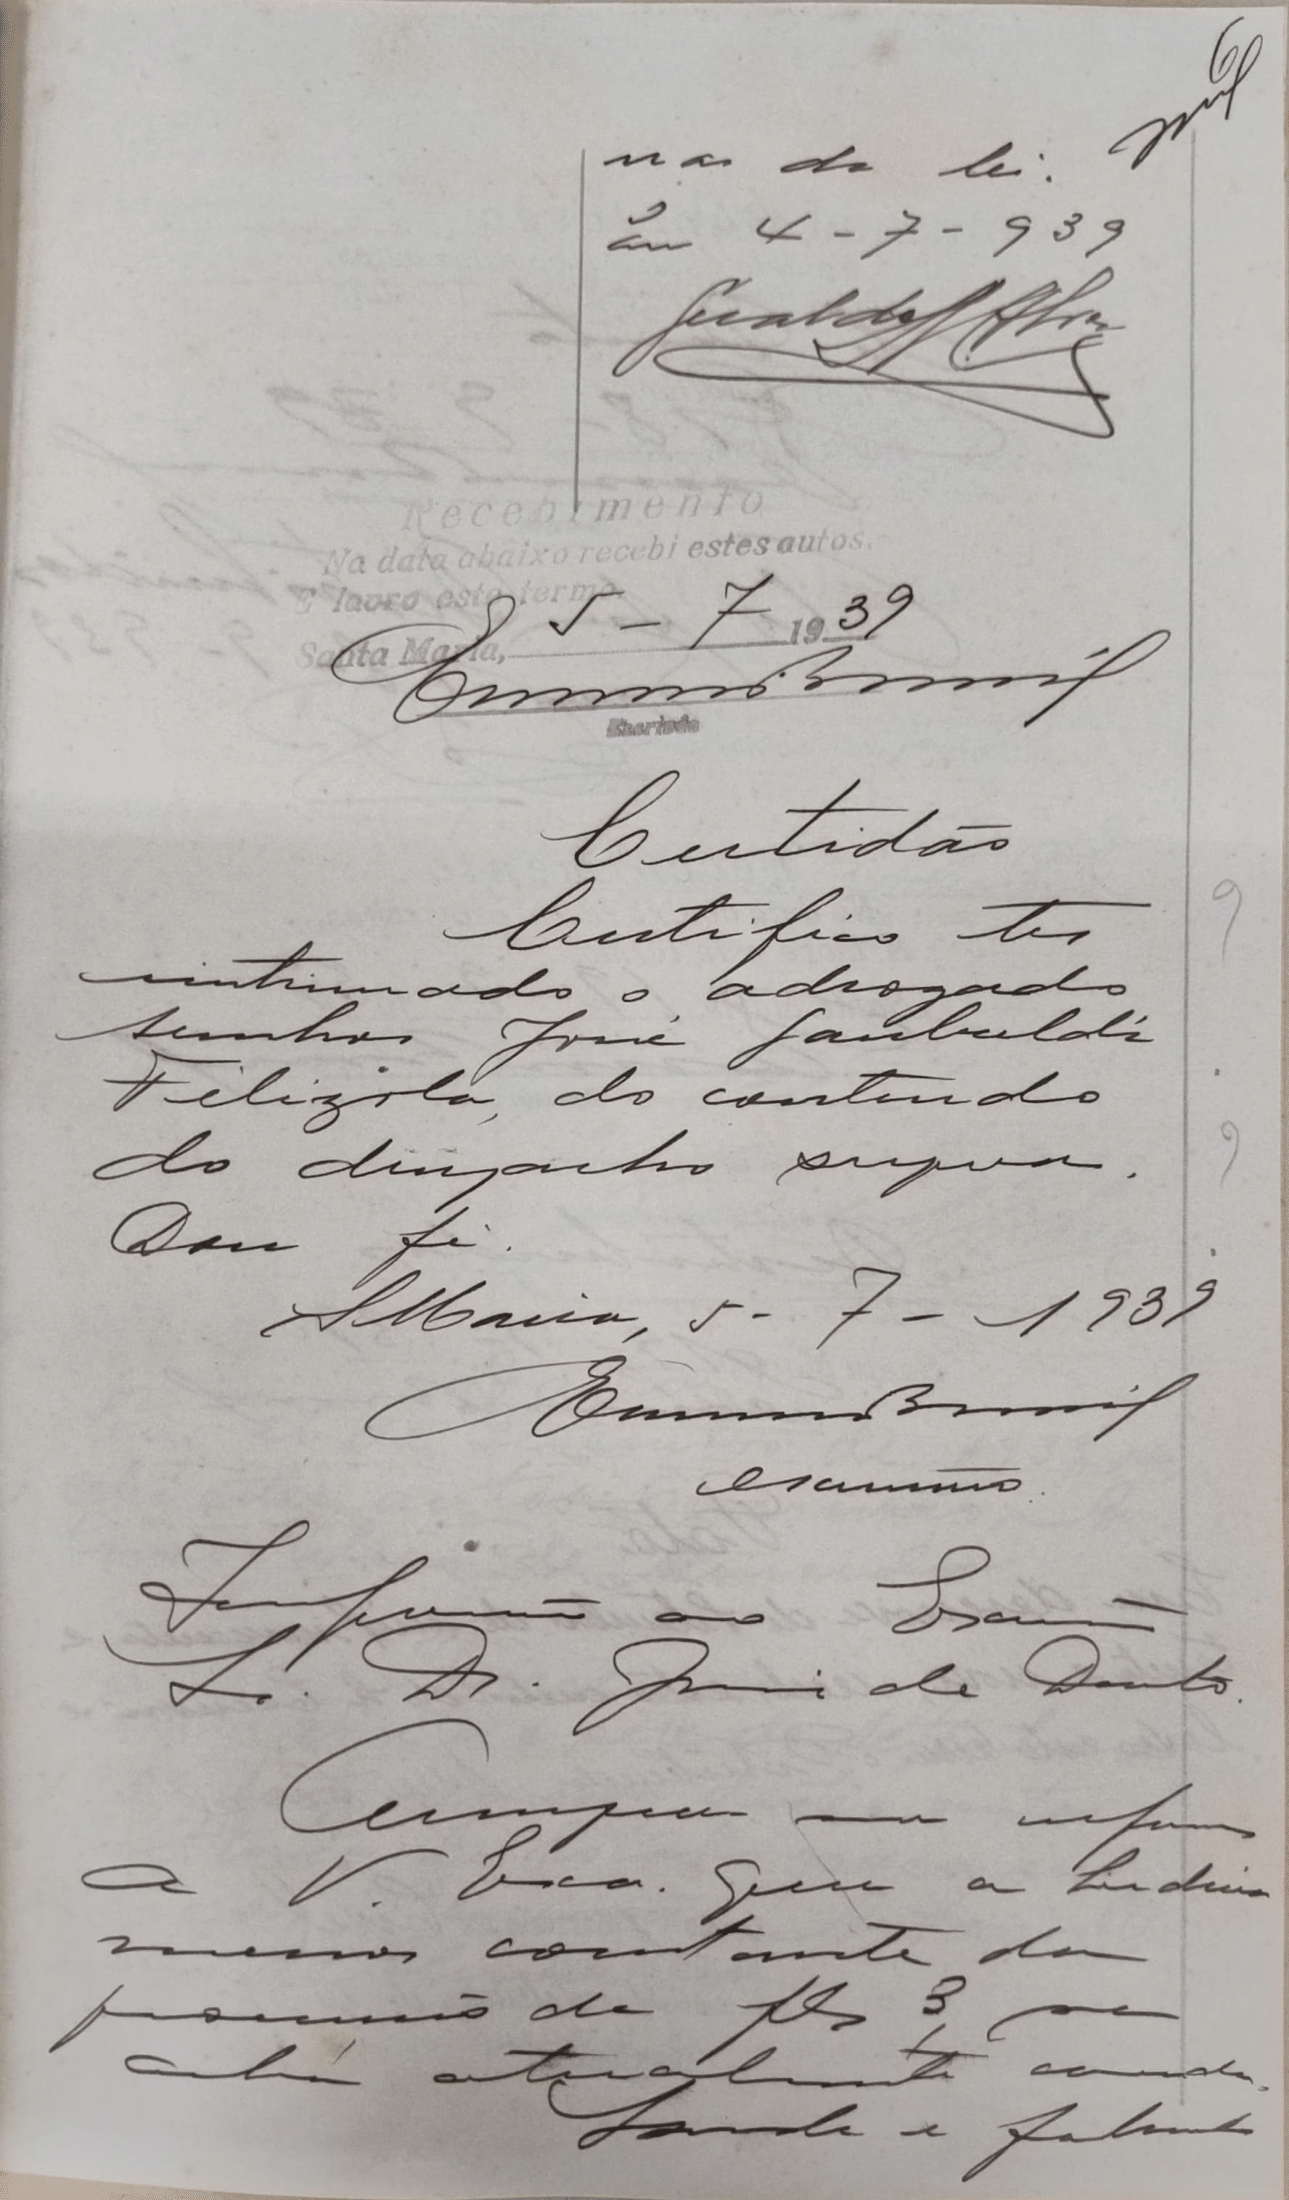 6
nas da lei.
Em 4-7-939
Recebimento
Na data abaixo recebi estes autos.
E lavro este termo.
Santa Maria, 5-7 1939
Escrivão
Certidão
Certifico ter
intimado o advogado
senhor José Garibaldi
Felizola, do conteudo
do despacho supra.
Dou fé.
S Maria, 5-7-1939
escrivão.
Informação ao Exmº
Sr. Dr. Juiz de Direito.
Cumpre me informar
a V. Exca. que a
menor constante da
de fls 3, se
acha atualmente
e